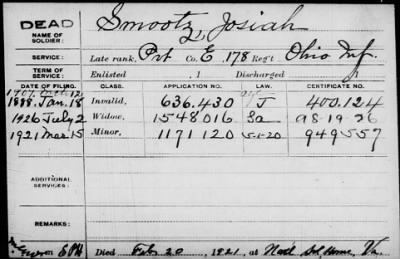 DEAD
NAME OF SOLDIER: Smootz, Josiah
SERVICE: Late rank, Prt Co. E, 178 Reg't Ohio Inf.
TERM OF SERVICE: Enlisted , 1 Discharged , 1
DATE OF FILING. CLASS. APPLICATION NO. LAW. CERTIFICATE NO.
1888 Jan. 18 Invalid, 636.430 J 400.124
1926 July 2 Widow, 1548016 a8-19-26
1921 Mar. 15 Minor, 1171120 5-1-20 949557
ADDITIONAL SERVICES:
REMARKS:
Died Feb 20, 1921, at Natl Sol Home, Va.